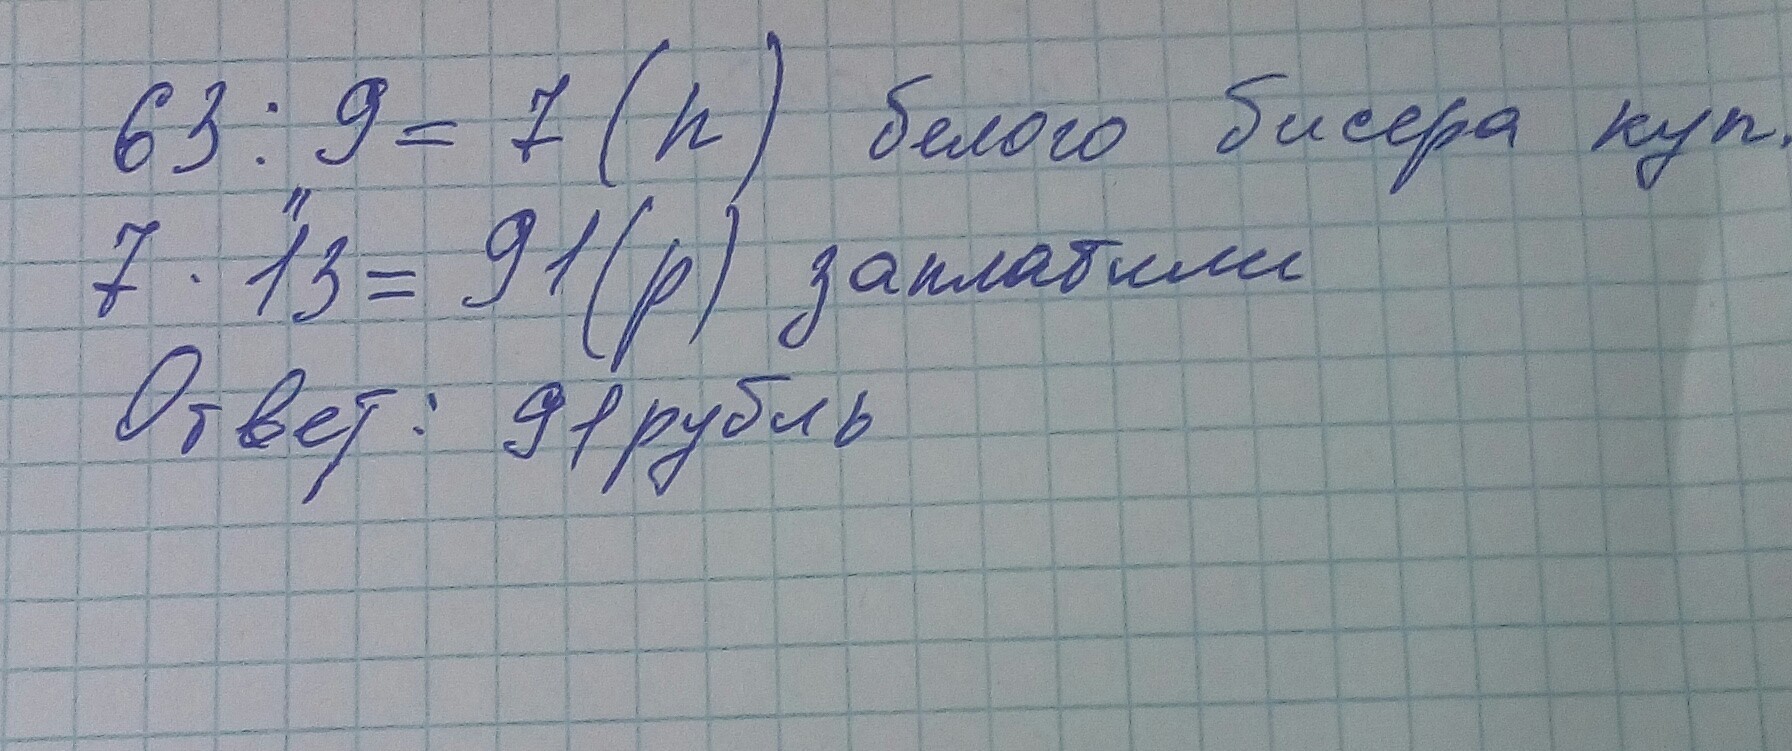 63 : 9 = 7 (п) белого бисера куп.
7 · 13 = 91 (р) заплатили
Ответ: 91 рубль